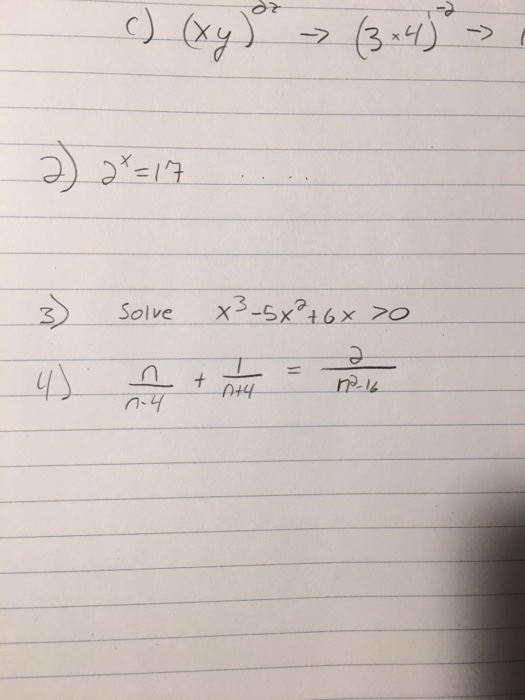 c) (xy)^2z → (3×4)^-2 →
2) 2^x = 17 .....
3) Solve x^3-5x^2+6x >0
4) n/n-4 + 1/n+4 = 2/n^2-16